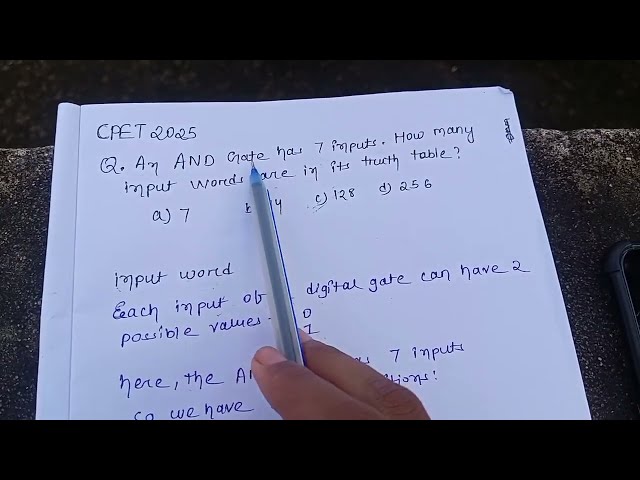 CPET 2025
Q. An AND Gate has 7 inputs. How many
input words are in its truth table?
a) 7 c) 128 d) 256
input world
Each input of digital gate can have 2
possible values 0
1
here, the 7 inputs
so we have